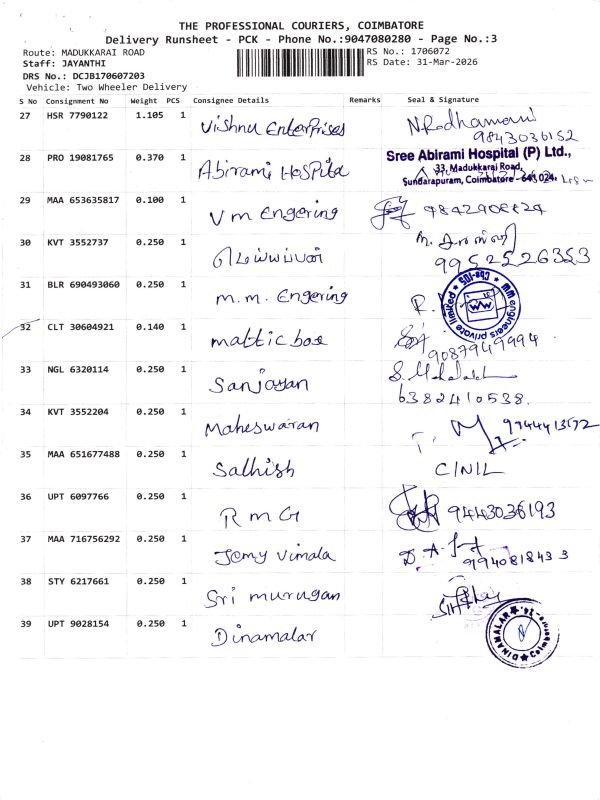 THE PROFESSIONAL COURIERS, COIMBATORE
Delivery Runsheet - PCK - Phone No.:9047080280 - Page No.:3
Route: MADUKKARAI ROAD
RS No.: 1706072
Staff: JAYANTHI
RS Date: 31-Mar-2026
DRS No.: DCJB170607203
Vehicle: Two Wheeler Delivery
S No Consignment No Weight PCS Consignee Details Remarks Seal & Signature
27 HSR 7790122 1.105 1 Vishnu Enterprises N.Radhamani
9843036152
28 PRO 19081765 0.370 1 Abirami Hospital Sree Abirami Hospital (P) Ltd.,
33, Madukkarai Road,
Sundarapuram, Coimbatore - 641 024.
29 MAA 653635817 0.100 1 V m Engering
30 KVT 3552737 0.250 1 மெய்யப்பன்
9952526353
31 BLR 690493060 0.250 1 m.m. Engering R.
MM engineers private limited ★ cbe-105 ★
32 CLT 30604921 0.140 1
9087949994
33 NGL 6320114 0.250 1 Sanjayan
6382410538.
34 KVT 3552204 0.250 1 Maheswaran
35 MAA 651677488 0.250 1 Sathish CINIL
36 UPT 6097766 0.250 1 R m G 9443036193
37 MAA 716756292 0.250 1 Jemy Vimala
9940818433
38 STY 6217661 0.250 1 Sri murugan
39 UPT 9028154 0.250 1 Dinamalar
DINAMALAR ★ Coimbatore